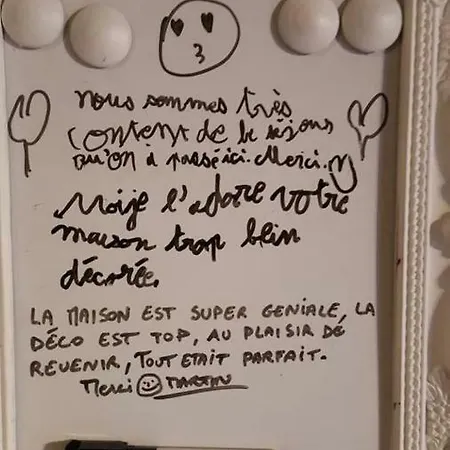 nous sommes très
content de le séjous
qu'on à passé ici. Merci.
Moi je l'adore votre
maison trop bein
décorée.
LA MAISON EST SUPER GENIALE, LA
DÉCO EST TOP, AU PLAISIR DE
REVENIR, TOUT ETAIT PARFAIT.
Merci MARTIN